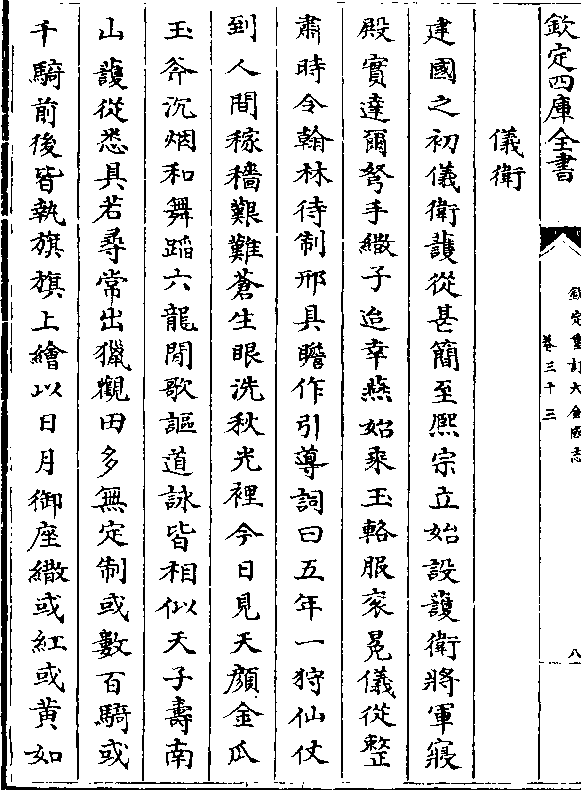 欽定四庫全書
欽定重訂大金國志
卷三十三
八
儀衛
建國之初儀衛䕶從甚簡至熈宗立始設䕶衛將軍寢
殿實達爾弩手繖子迨幸燕始乘玉輅服衮冕儀從整
肅時令翰林待制邢具瞻作引導詞曰五年一狩仙仗
到人間稼穡艱難蒼生眼洗秋光裡今日見天顔金瓜
玉斧沉烟和舞蹈六龍閒歌謳道詠皆相似天子壽南
山䕶從悉具若尋常出獵觀田多無定制或數百騎或
千騎前後皆執旗旗上繪以日月御座繖或紅或黃如